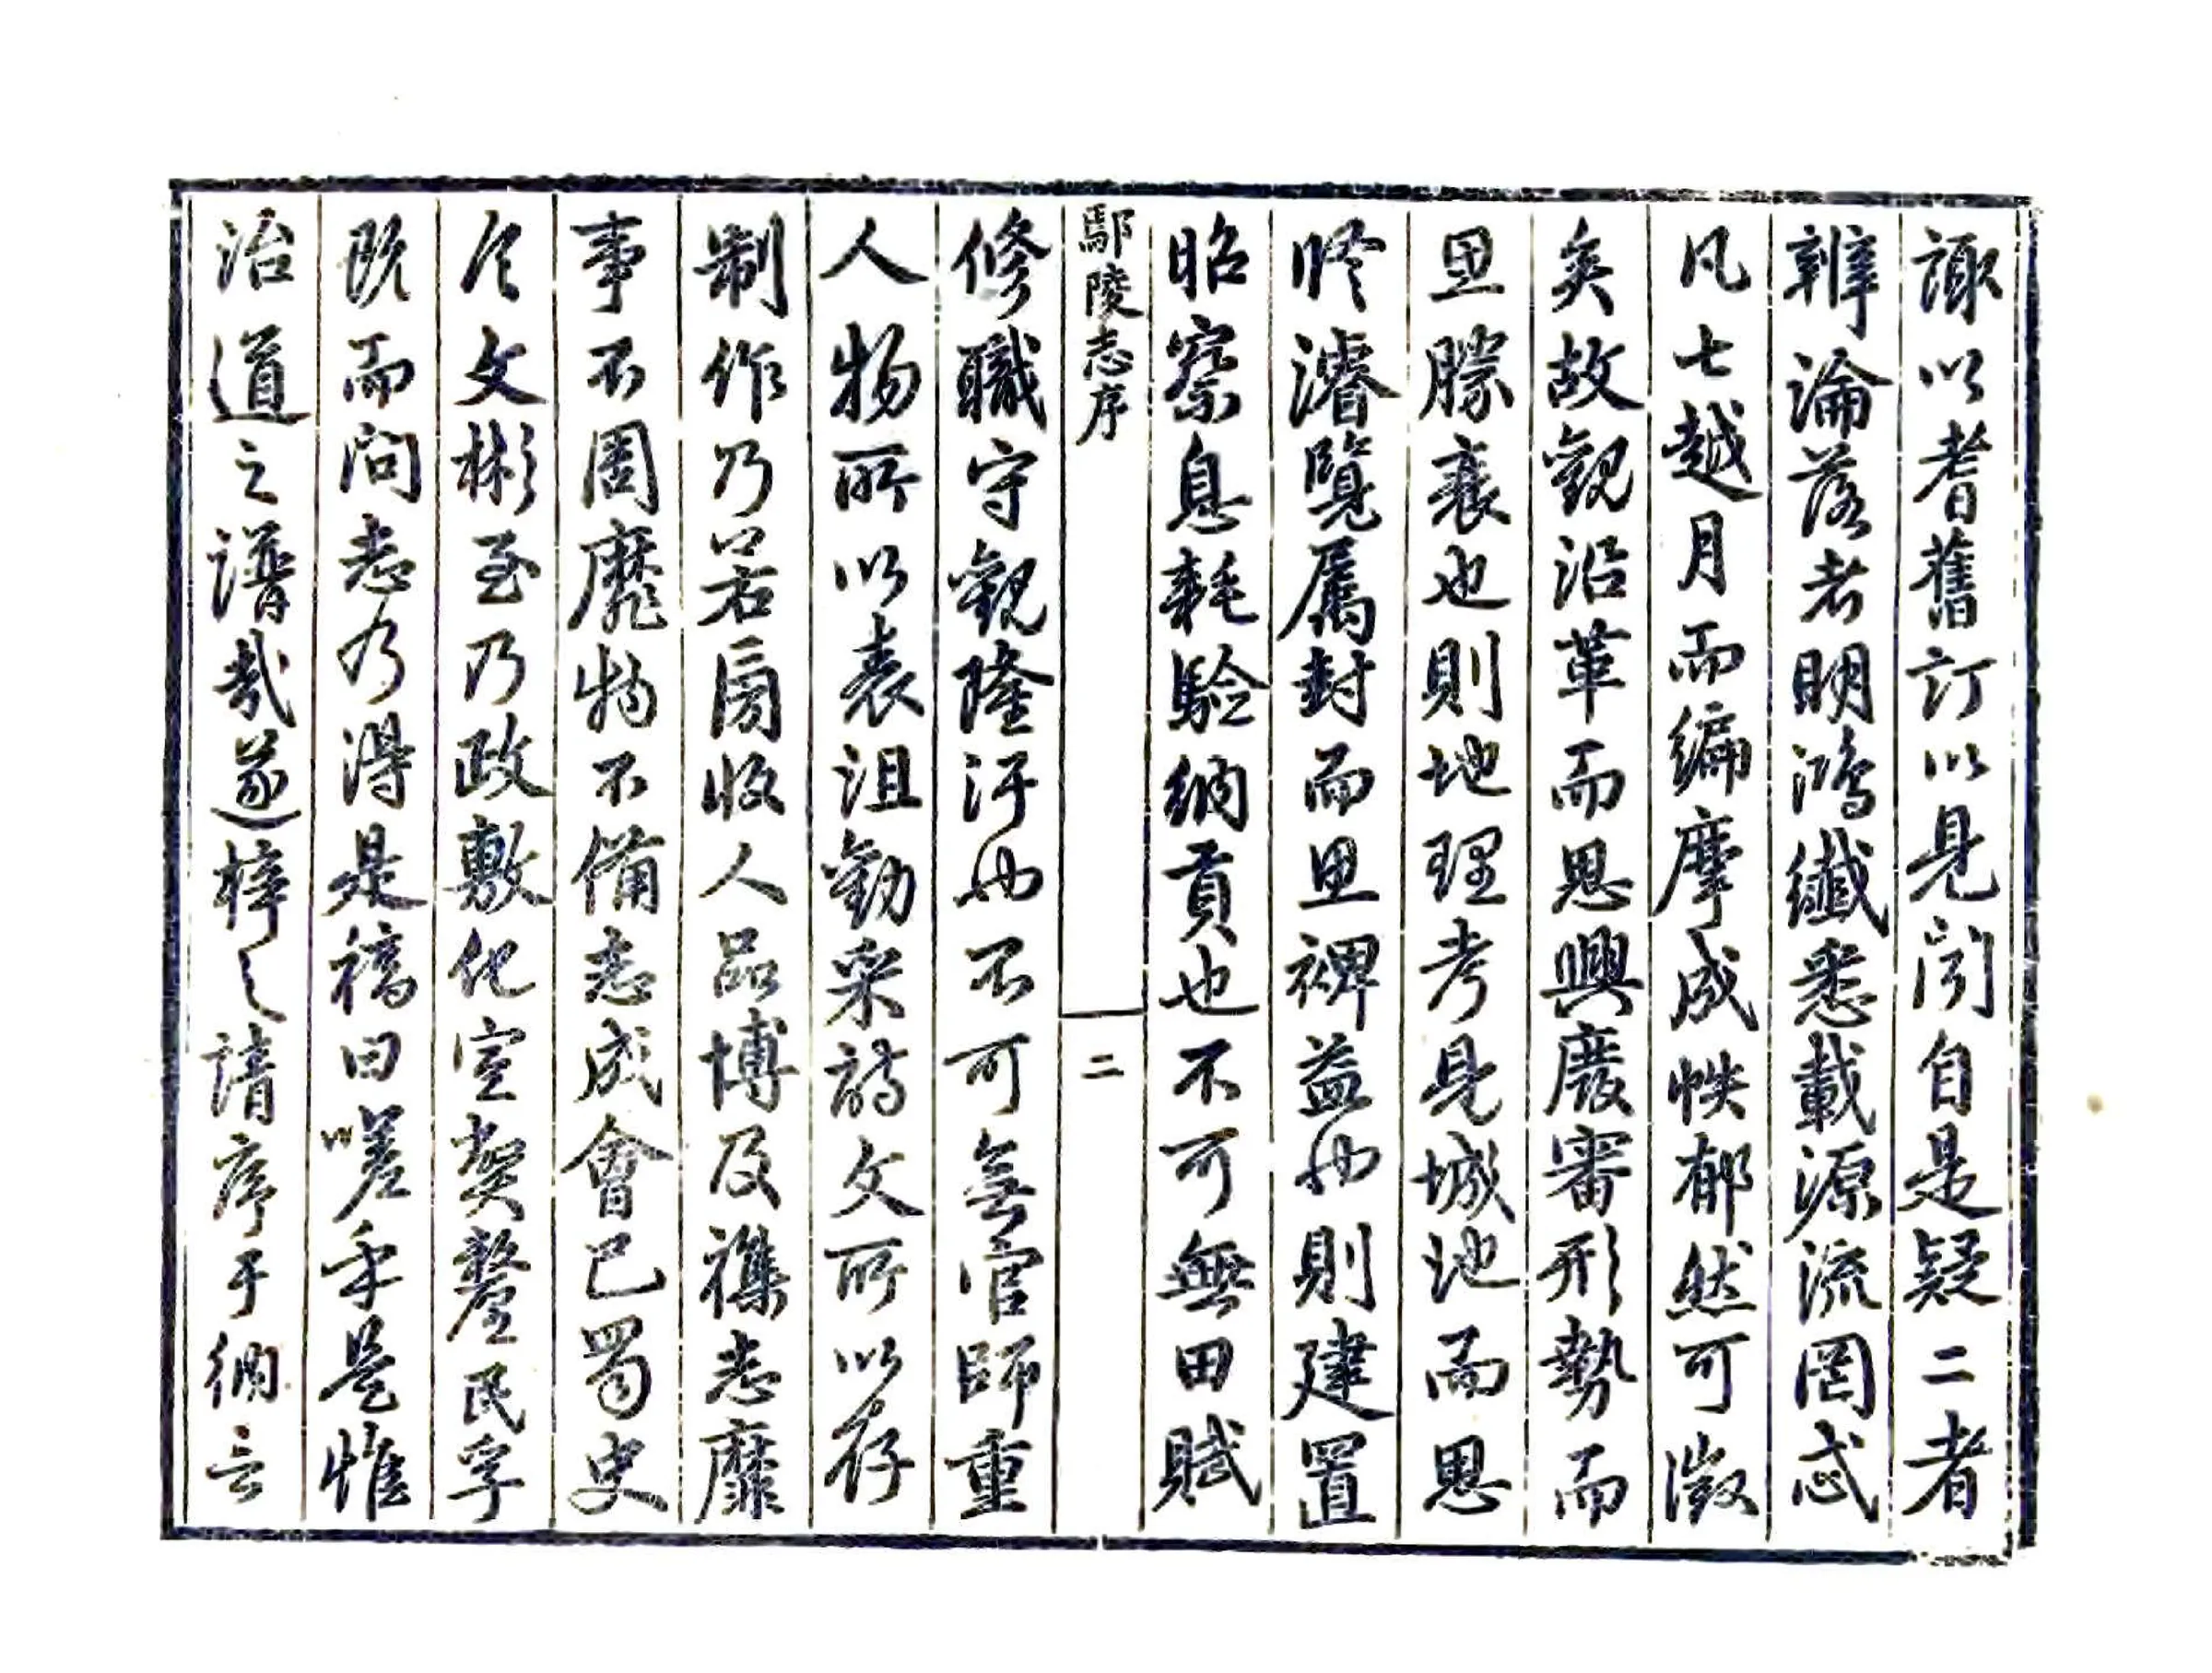 諏以耆舊訂以見聞自是疑二者
辨論落者明鴻纖悉載源流罔忒
凡七越月而編摩成帙郁然可徵
矣故觀沿革而思興廢審形勢而
思勝襄也則地理考見城池而思
修濬覽屬封而思裨益也則建置
昭察息耗驗納貢也不可無田賦
鄢陵志序
二
修職守觀隆汙也不可無官師重
人物所以表沮勸采詩文所以存
制作乃若旁收人品博及襍志靡
事不周靡物不備志成會巴蜀史
文彬至乃政敷化宣弊釐民孚
既而問志乃得是稿曰嗟乎是惟
治道之譜哉遂梓之請序于納言